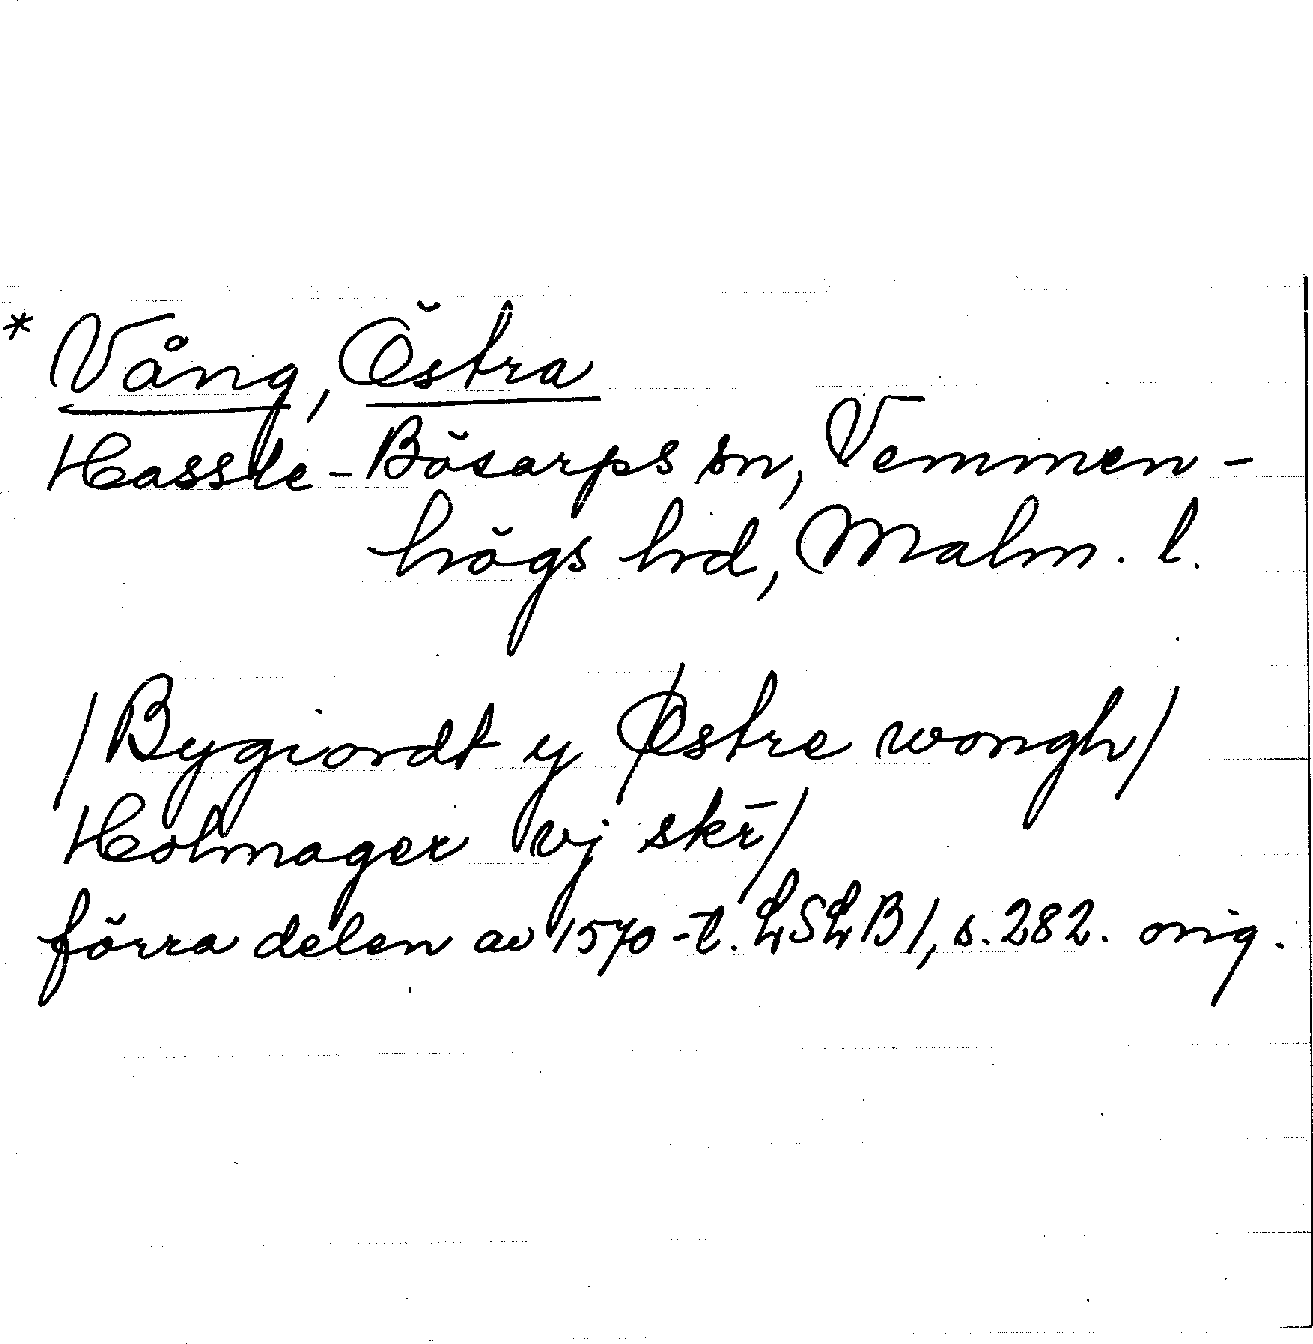 * Vång, Östra
Hassle-Bösarps sn, Vemmen-
högs hd, Malm. l.
/Bygiordt y Østre wongh/
Holmager vj skr̄/
förra delen av 1570-t. LSLB1, s. 282. orig.